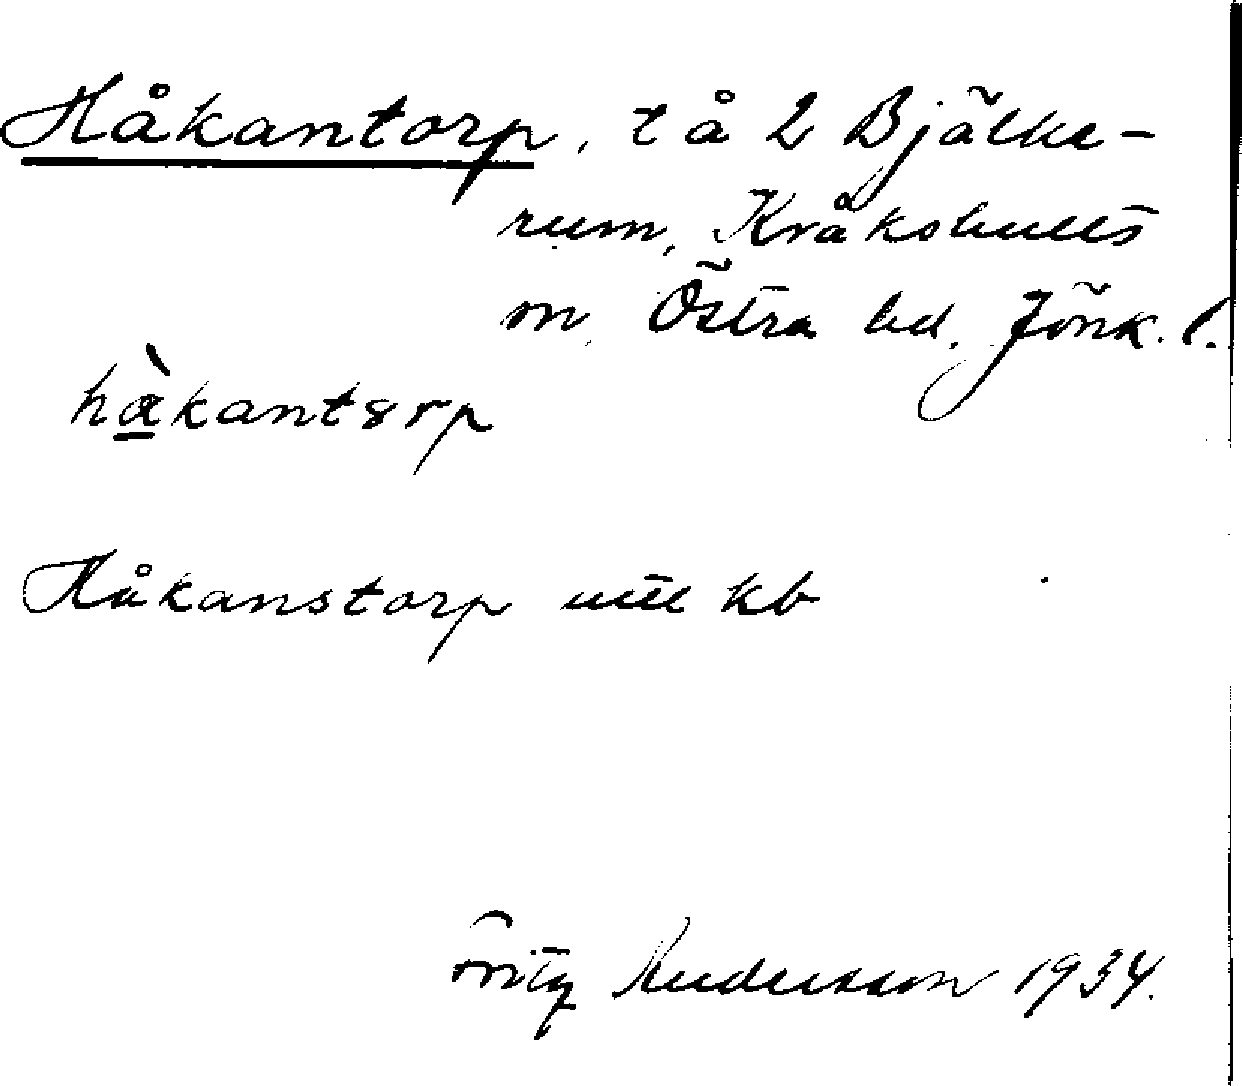 Håkantorp, t å 2 Bjälke-
rum, Kråkshults
sn, Östra hd. Jönk. l.
hàkantørp
Håkanstorp utt kb
Fritz Andersson 1934.